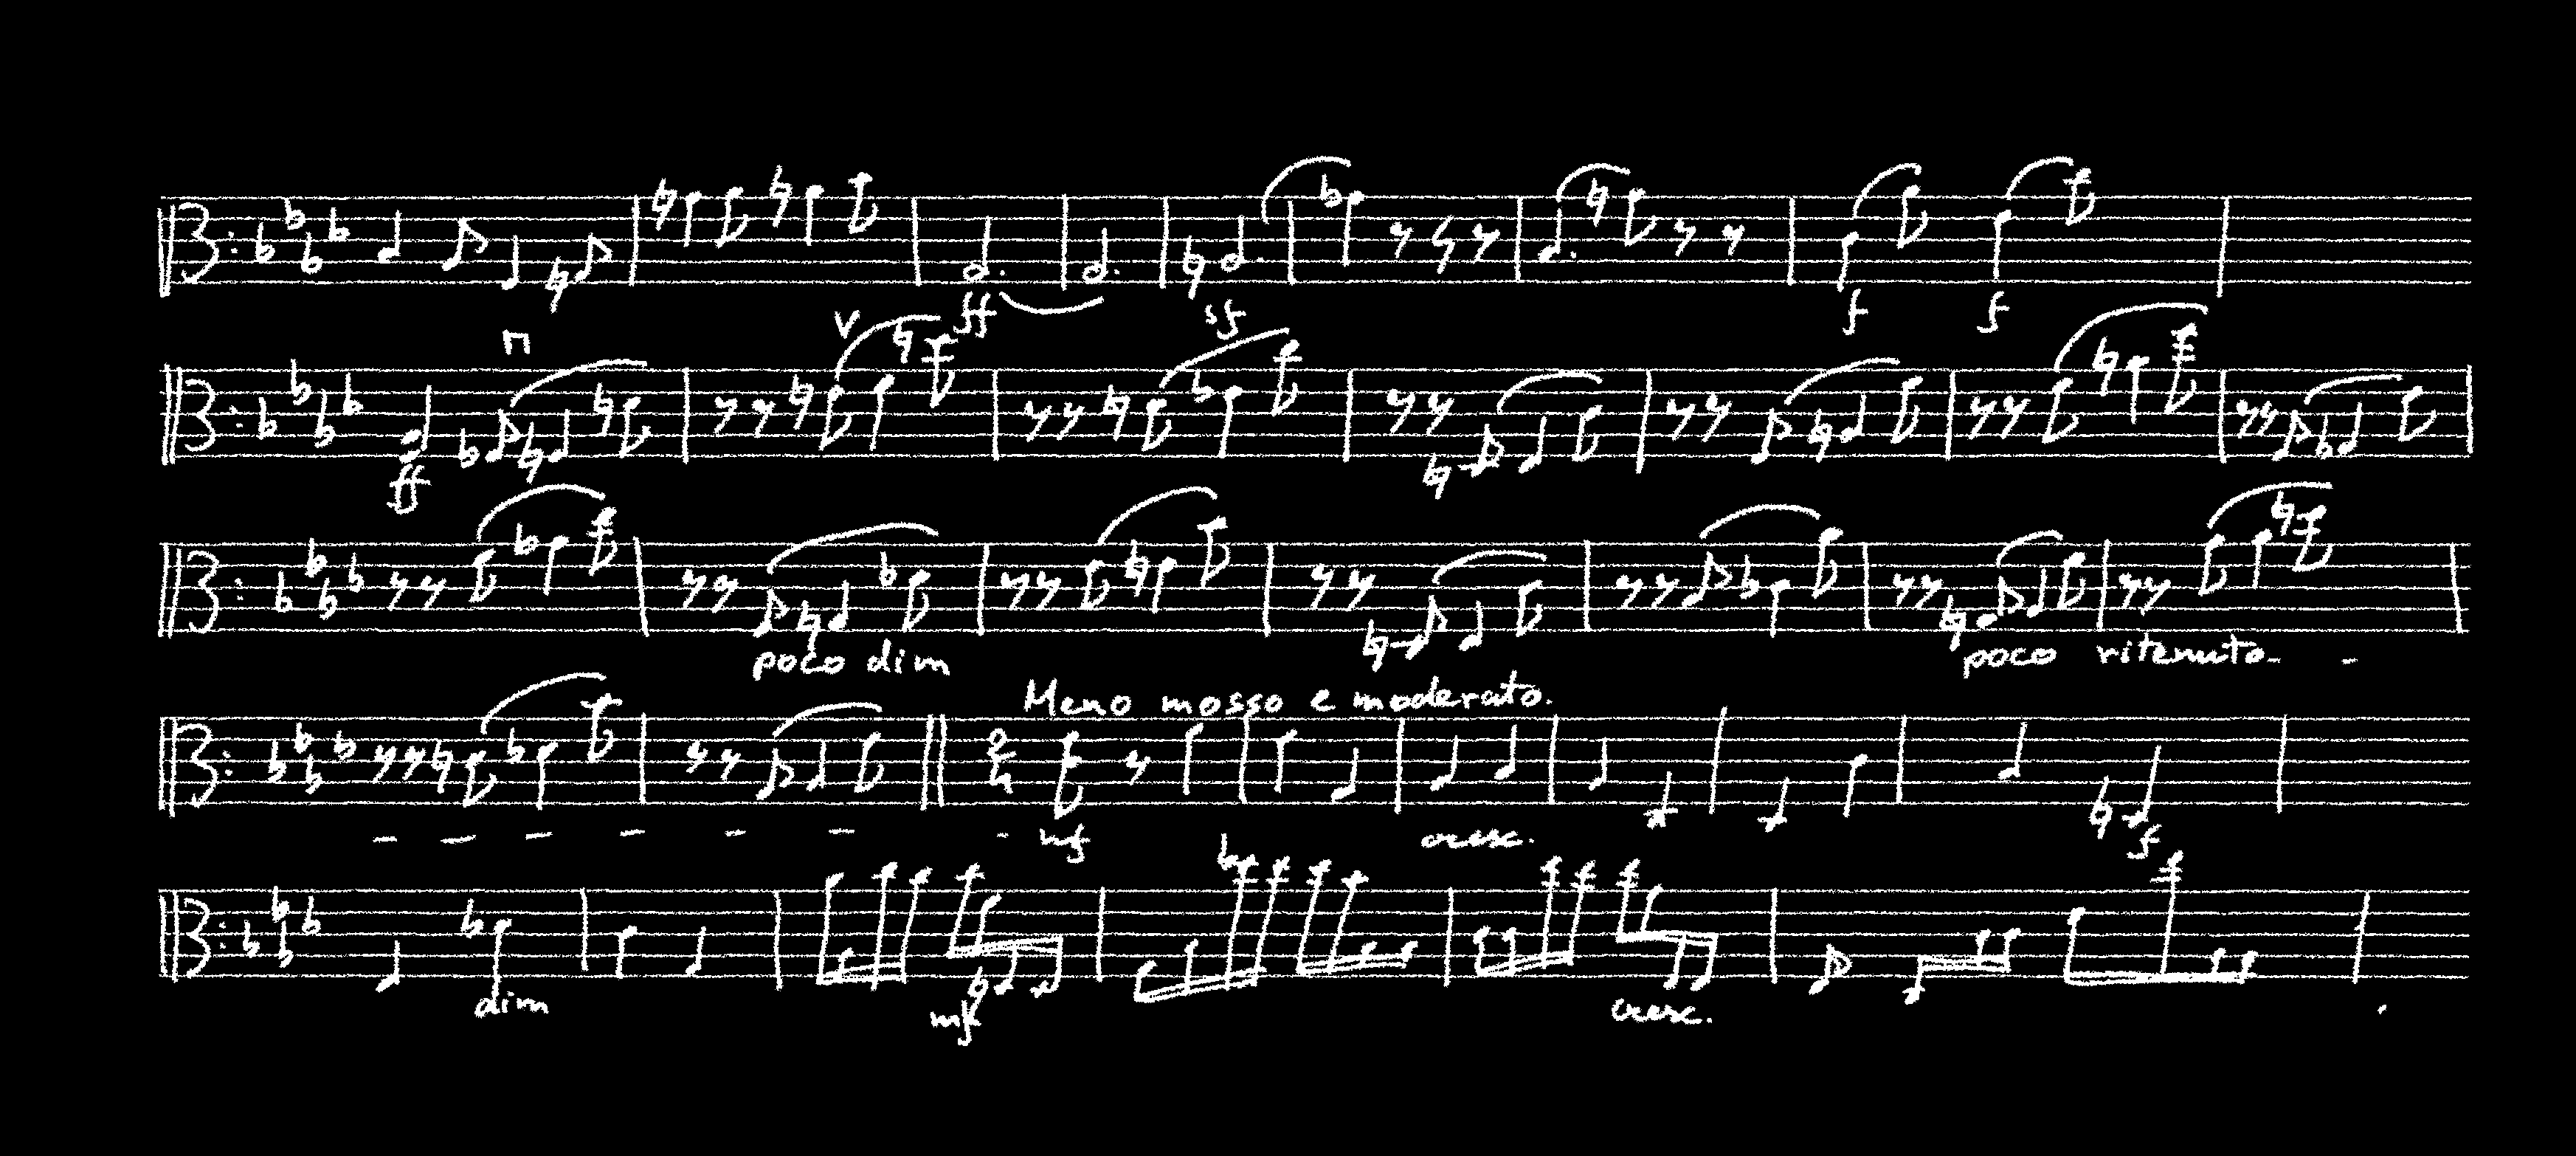 ff sf f f
ff
poco dim poco ritenuto
Meno mosso e moderato.
mf cresc. f
dim mf cresc.